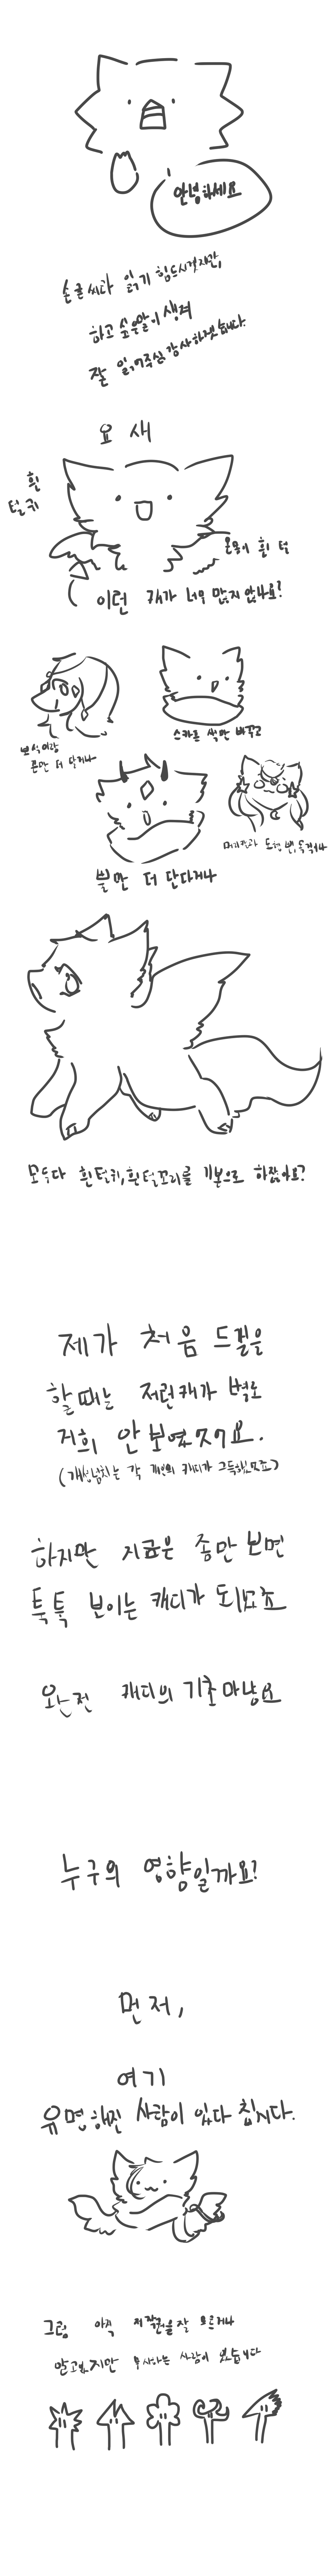 안녕하세요
손글씨라 읽기 힘드시겠지만,
하고 싶은말이 생겨
잘 읽어주심 감사하겠습니다.
요새
흰
털귀
온몸이 흰 털
이런 캐가 너무 많지 않나요?
보석이랑
뿔만 더 달거나
스카프 색만 바꾸고
뿔만 더 단다거나
모두다 흰털귀, 흰털꼬리를 기본으로 하잖아요?
제가 처음 드컬을
할때는 저런캐가 별로
저희 안보였거든요.
(개성넘치는 각 개인의 캐디가 가득했었죠)
하지만 지금은 좀만 보면
툭툭 보이는 캐디가 되었죠
완전 캐디의 기초마냥요
누구의 영향일까요?
먼저,
여기
유명해진 사람이 있다 칩시다.
그럼 아직 저작권을 잘 모르거나
알고있지만 무시하는 사람이 있습니다